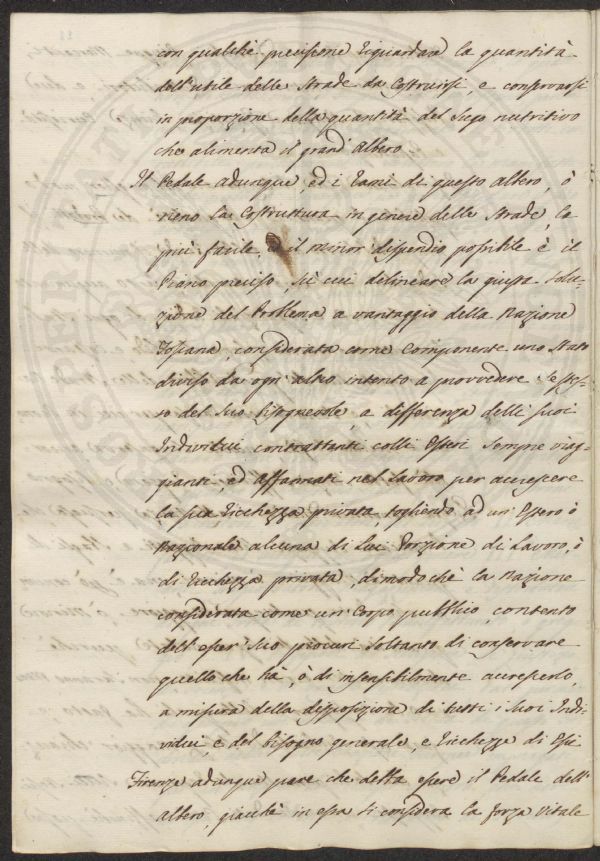 con qualche precisione riguardare la quantità
dell'utile delle Strade da Costruirsi, e conservarsi
in proporzione della quantità del Sugo nutritivo
che alimenta il grand'Albero
Il Pedale adunque, ed i rami di questo albero, ò
sieno la Costruttura in genere delle Strade, la
più facile, e il minor dispendio possibile è il
Piano preciso, sù cui delineare la giusta Solu-
zione del Problema a vantaggio della Nazione
Toscana, considerata come Componente uno Stato
diviso da ogn'altro intento a provvedere Se stes-
so del Suo bisognevole, a differenza delli Suoi
Individui contrattenti colli Esteri Sempre viag-
gianti, ed affannati nel Lavoro per accrescere
la sua ricchezza privata, togliendo ad un'Estero ò
Nazionale alcuna di Lui Porzione di Lavoro, ò
di ricchezza privata, dimodochè la Nazione
considerata come un Corpo pubblico, contento
dell'esser Suo procuri Soltanto di conservare
quello che hà, ò di insensibilmente accrescerlo,
a misura della disposizione di tutti i Suoi Indi-
vidui, e del bisogno generale, e ricchezze di Essi
Firenze adunque pare che debba essere il Pedale dell'
albero, giacchè in essa si considera la forza vitale